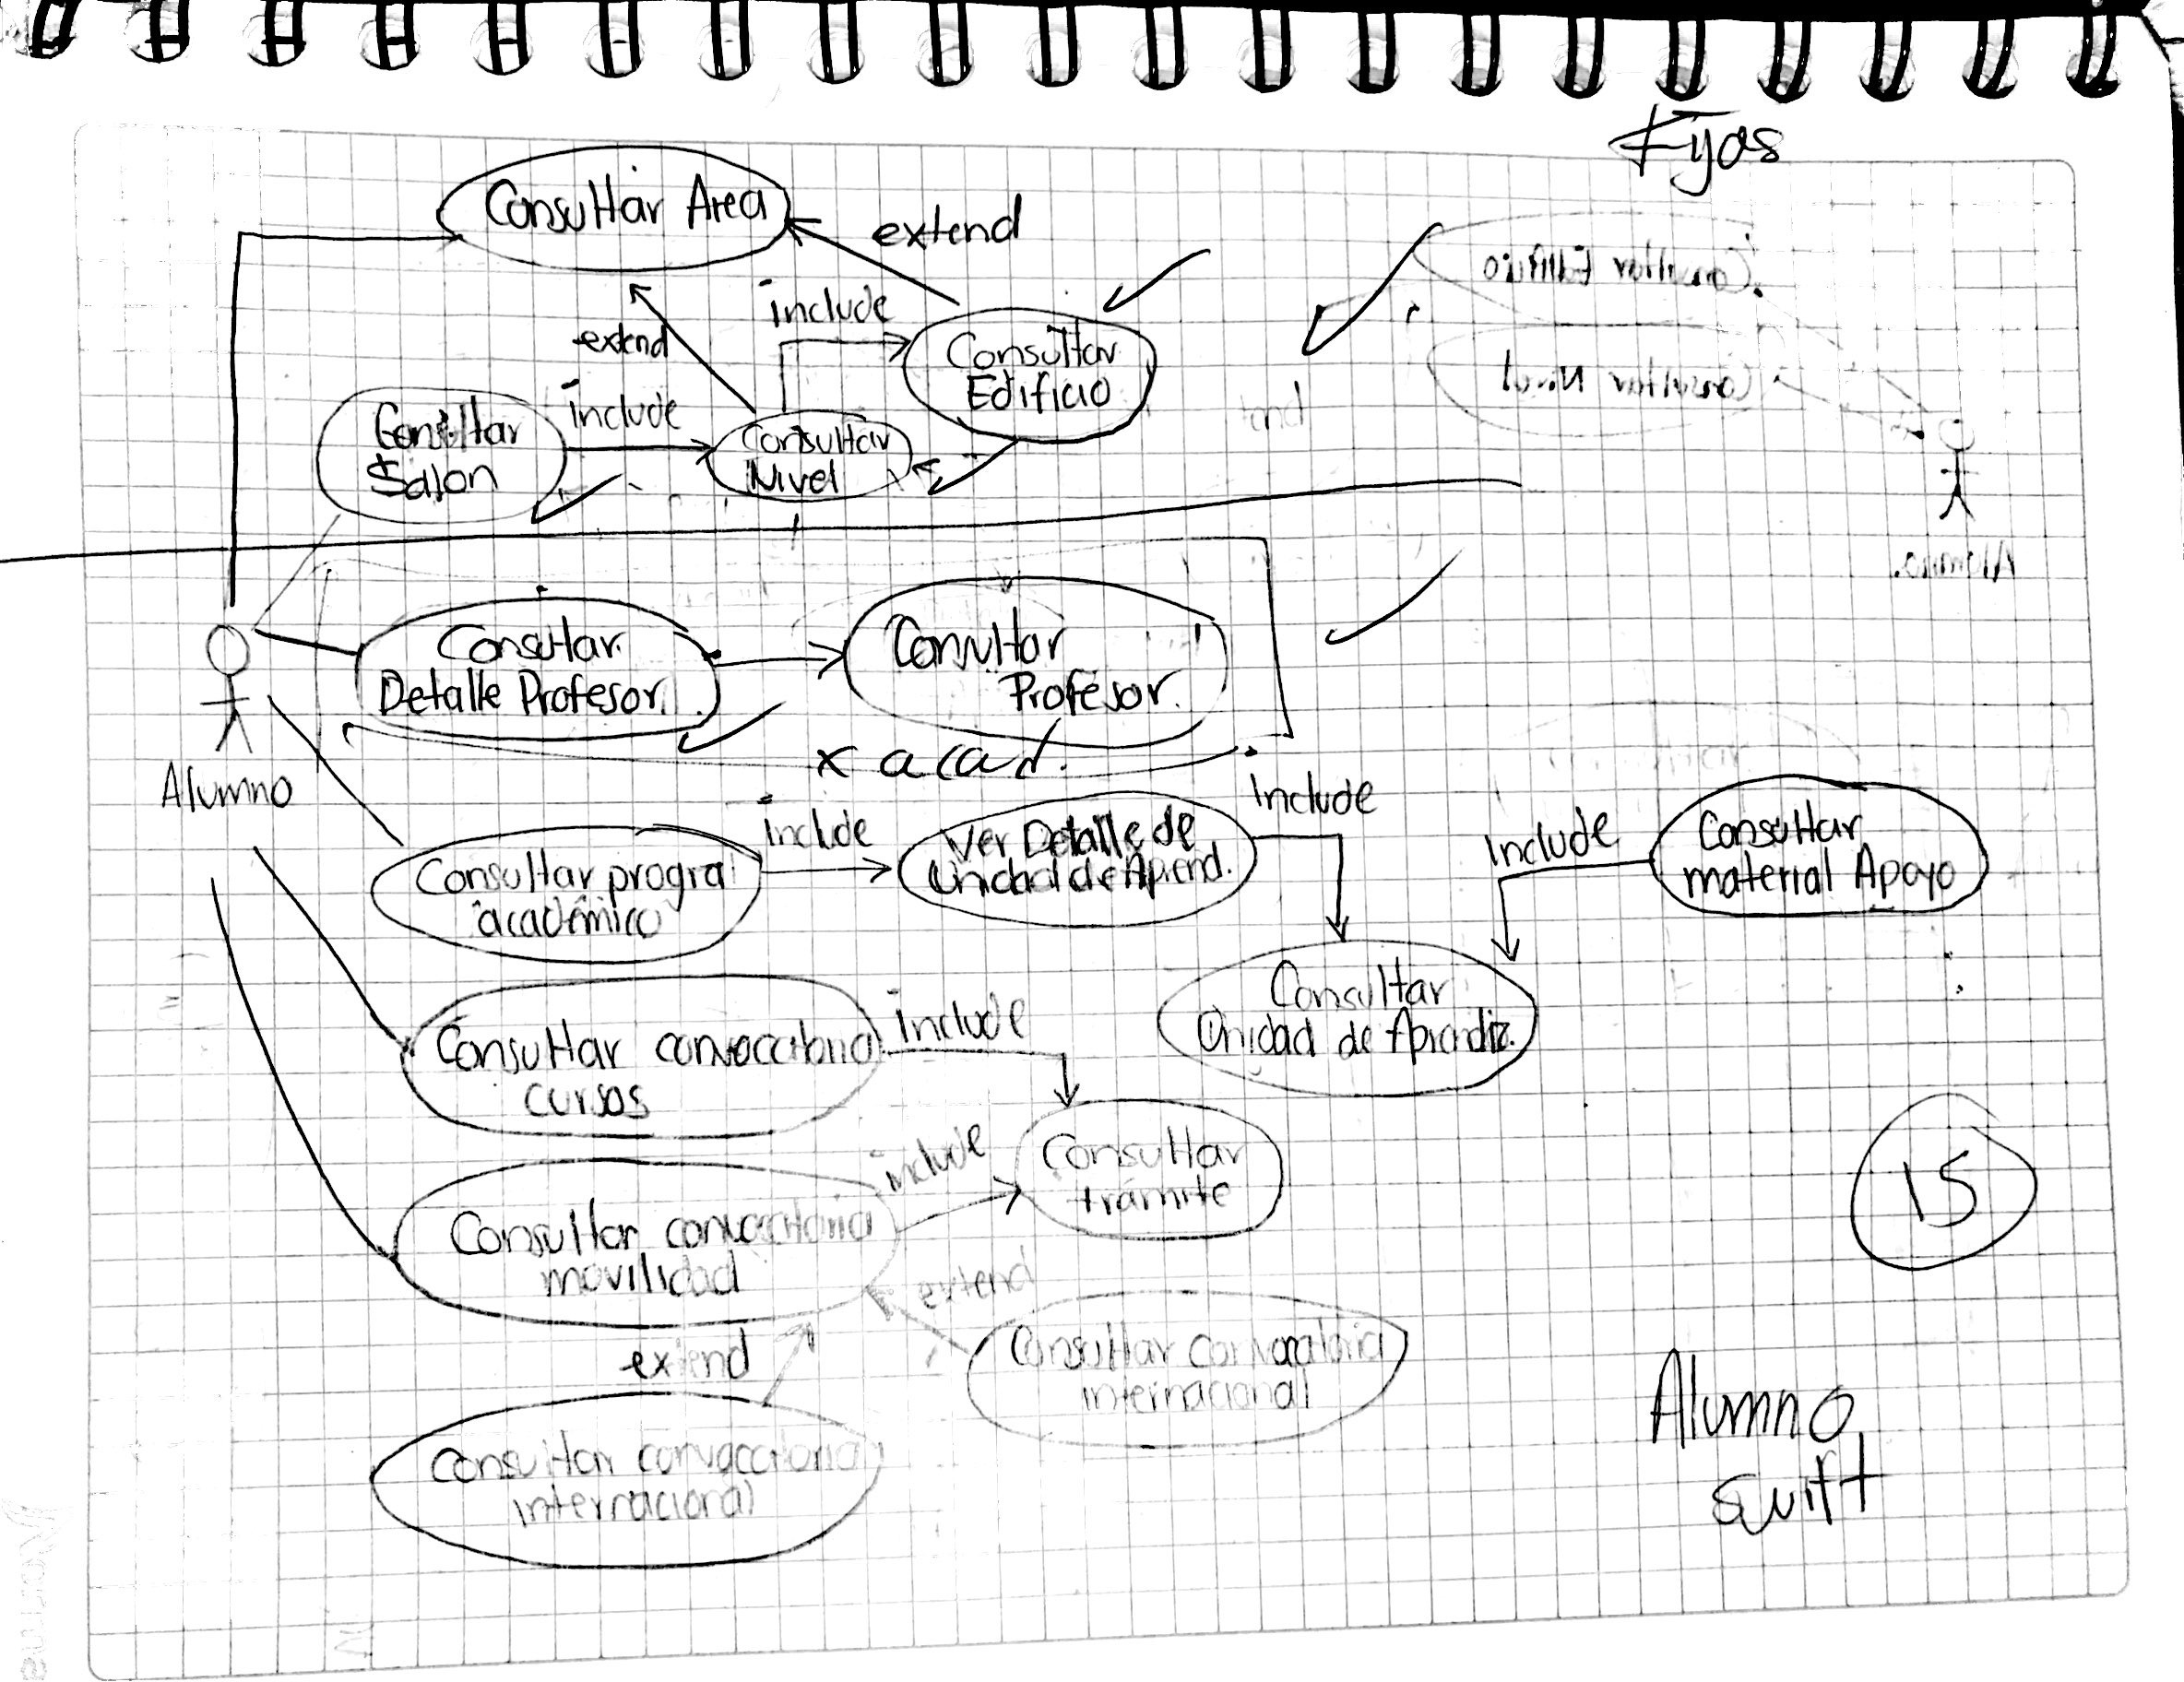 Fijos
Consultar Area
extend
include
extend
Consultar
Edificio
Consultar
Salon
include
Consultar
Nivel
Consultar
Detalle Profesor.
Consultar
Profesor.
x acad.
Alumno
include
Include
Consultar progra
académico
Ver Detalle de
Unidad de Aprend.
Include
Consultar
material Apoyo
Consultar
Unidad de Aprendiz.
Consultar convocatoria
cursos
include
include
Consultar
trámite
Consultar convocatoria
movilidad
extend
extend
Consultar convocatoria
internacional
Consultar convocatoria
internacional
15
Alumno
Swift